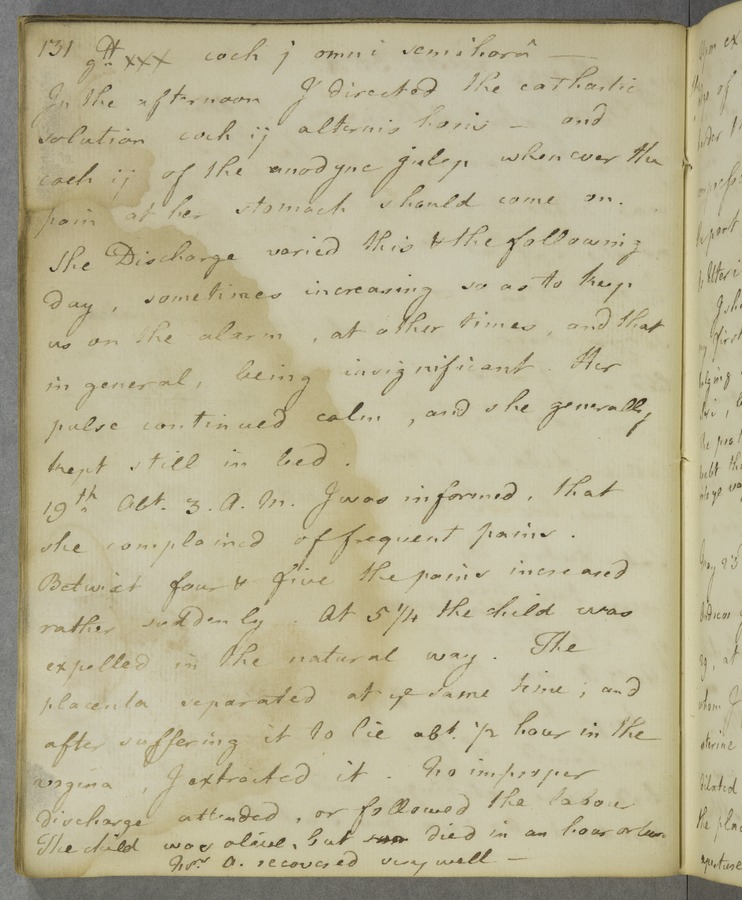 131 gtt xxx coch j omni semihorâ —
In the afternoon I directed the cathartic
solution coch ij alternis horis — and
coch ij of the anodyne julep whenever the
pain at her stomach should come on.
The Discharge varied this & the following
day, sometimes increasing so as to keep
us on the alarm, at other times, and that
in general, being insignificant. Her
pulse continued calm, and she generally
kept still in bed.
19th. Abt. 3. A. M. I was informed, that
she complained of frequent pains.
Betwixt four & five the pains increased
rather suddenly. At 5 1/4 the child was
expelled in the natural way. The
placenta separated at ye same time; and
after suffering it to lie abt. 1/2 hour in the
vagina, I extracted it. No improper
discharge attended, or followed the labour
The child was alive, but died in an hour or two
Mrs. A. recovered very well —